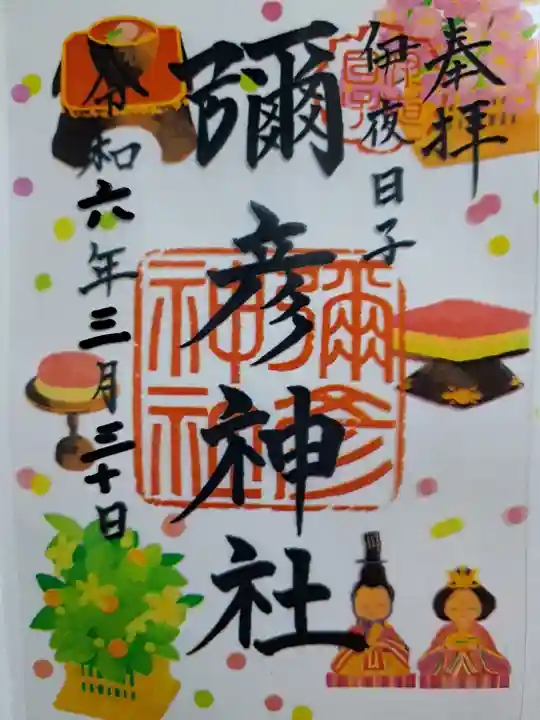 奉拝
伊夜日子
彌彦神社
令和六年三月三十日
彌彦
神社